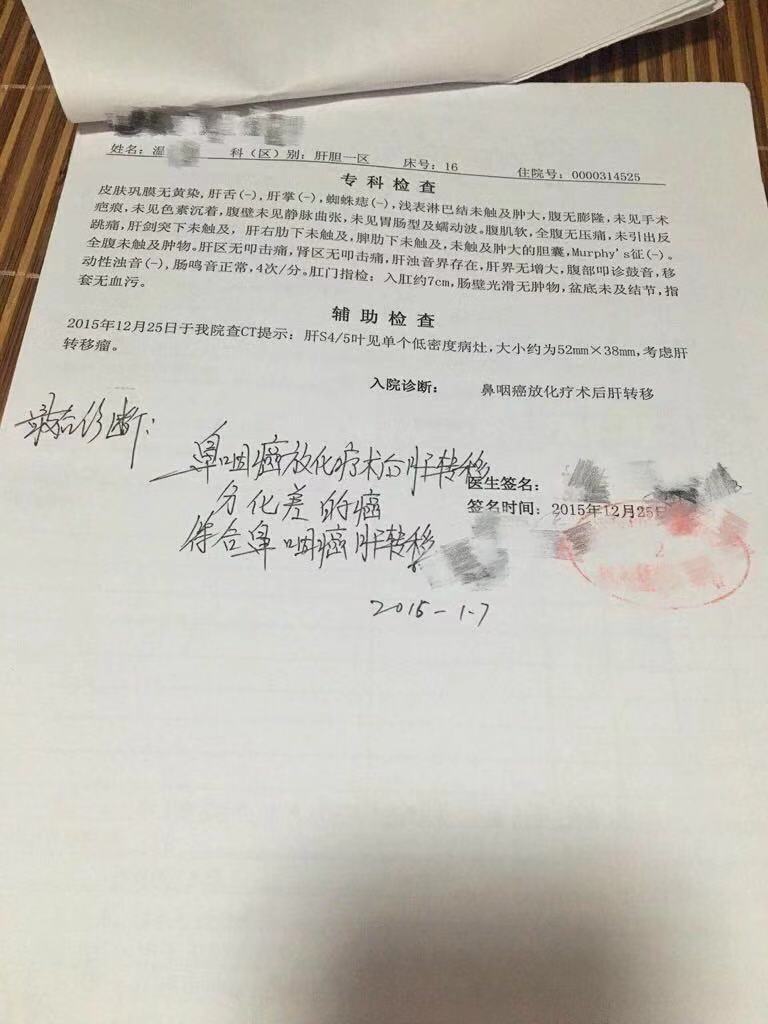 姓名：温 科（区）别：肝胆一区 床号：16 住院号：0000314525
专科检查
皮肤巩膜无黄染，肝舌(-)，肝掌(-)，蜘蛛痣(-)，浅表淋巴结未触及肿大，腹无膨隆，未见手术
疤痕，未见色素沉着，腹壁未见静脉曲张，未见胃肠型及蠕动波。腹肌软，全腹无压痛，未引出反
跳痛，肝剑突下未触及，肝右肋下未触及，脾肋下未触及，未触及肿大的胆囊，Murphy's征(-)。
全腹未触及肿物。肝区无叩击痛，肾区无叩击痛，肝浊音界存在，肝界无增大，腹部叩诊鼓音，移
动性浊音(-)，肠鸣音正常，4次/分。肛门指检：入肛约7cm，肠壁光滑无肿物，盆底未及结节，指
套无血污。
辅助检查
2015年12月25日于我院查CT提示：肝S4/5叶见单个低密度病灶，大小约为52mm×38mm，考虑肝
转移瘤。
入院诊断： 鼻咽癌放化疗术后肝转移
最后诊断：
鼻咽癌放化疗术后肝转移
分化差的癌
符合鼻咽癌肝转移
医生签名：
签名时间：2015年12月25日
2015-1.7